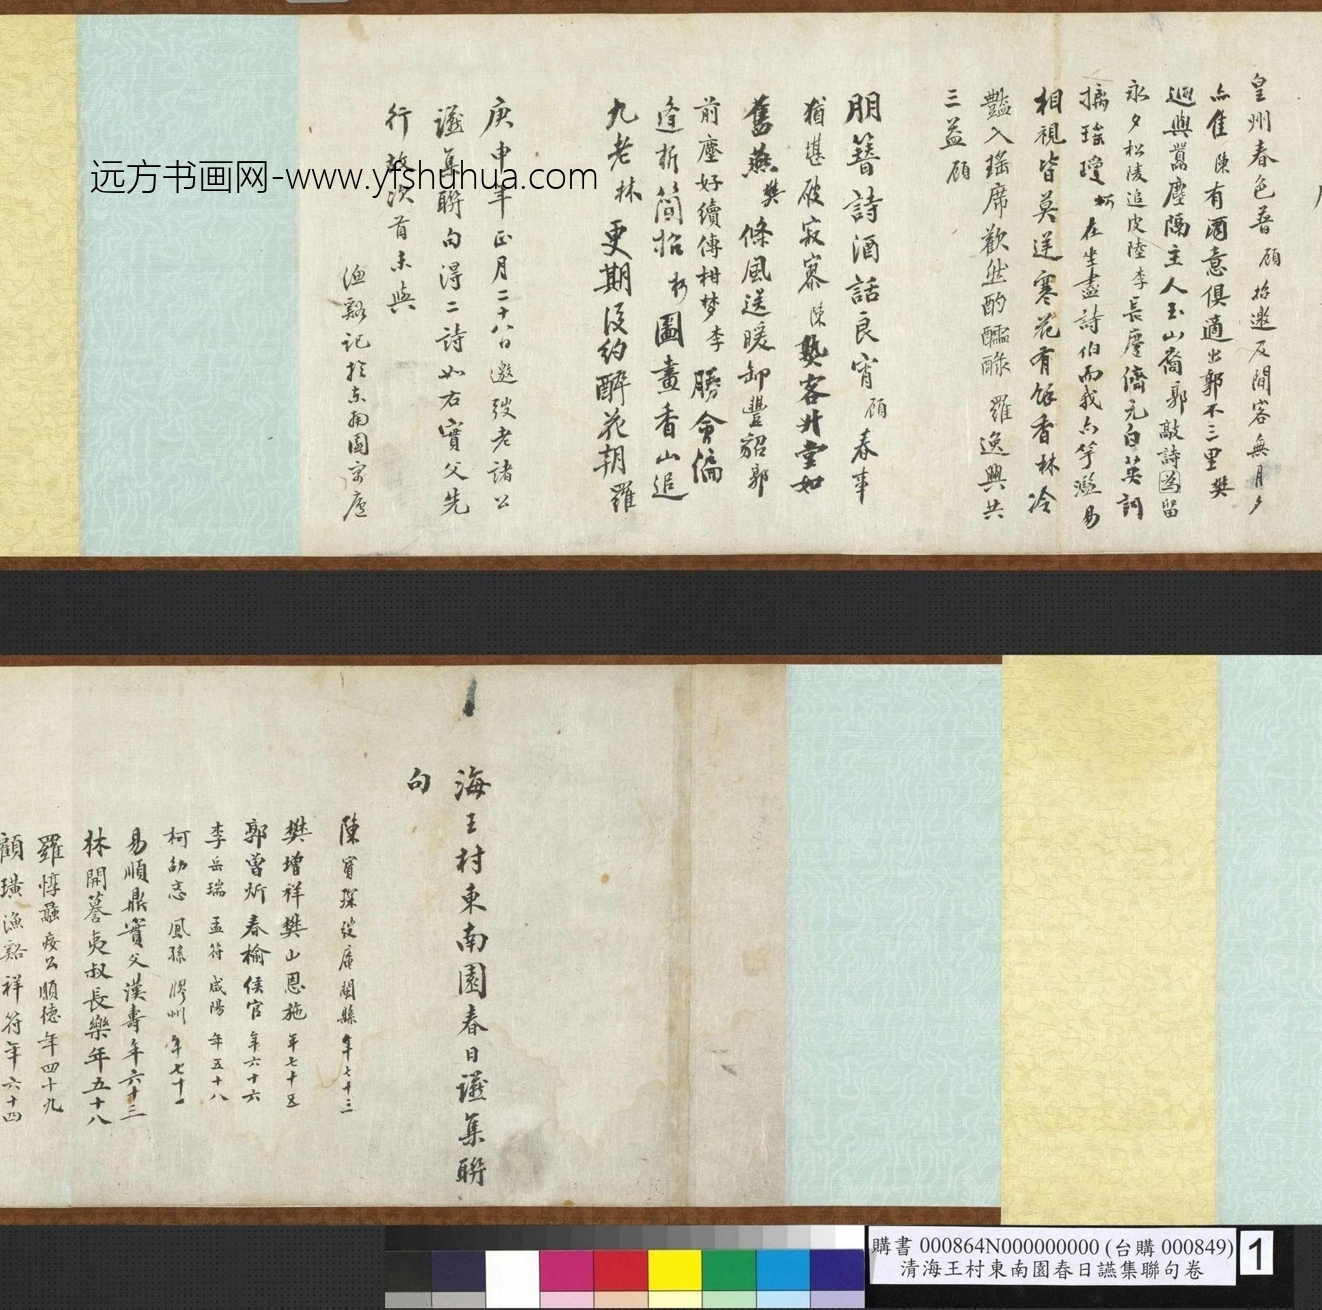 皇州春色菩 顧 招邀及閒客無月夕
亦佳 陳 有酒意俱適出郭不三里 樊
逈與囂塵隔主人玉山裔 郭 敲詩為留
永夕松陵追皮陸 李 長慶儕元白英詞
摛瑤瓊 柯 在坐盡詩伯而我亦竽濫 易
相視皆莫逆寒花有餘香 林 冷
豔入瑤席歡然酌醽醁 羅 逸興共
三益 顧
朋簪詩酒話良宵 顧 春事
猶堪破寂寥 陳 熟客升堂如
舊燕 樊 條風送暖卸豐貂 郭
前塵好續傳柑夢 李 勝會偏
逢折簡招 柯 圖畫香山追
九老 林 更期後約醉花朝 羅
庚申年正月二十八日邀弢老諸公
讌集聯句得二詩如右實父先
行 故次首未與
漁谿記於東南園寓廬
远方书画网-www.yfshuhua.com
海王村東南園春日讌集聯
句
陳寶琛弢庵閩縣年七十三
樊增祥樊山恩施年七十五
郭曾炘春榆侯官年六十六
李岳瑞孟符咸陽年五十八
柯劭忞鳳孫膠州年七十一
易順鼎實父漢壽年六十三
林開謩夷叔長樂年五十八
羅惇曧瘿公順德年四十九
顧璜漁谿祥符年六十四
購書 000864N000000000 (台購 000849)
清海王村東南園春日讌集聯句卷
1